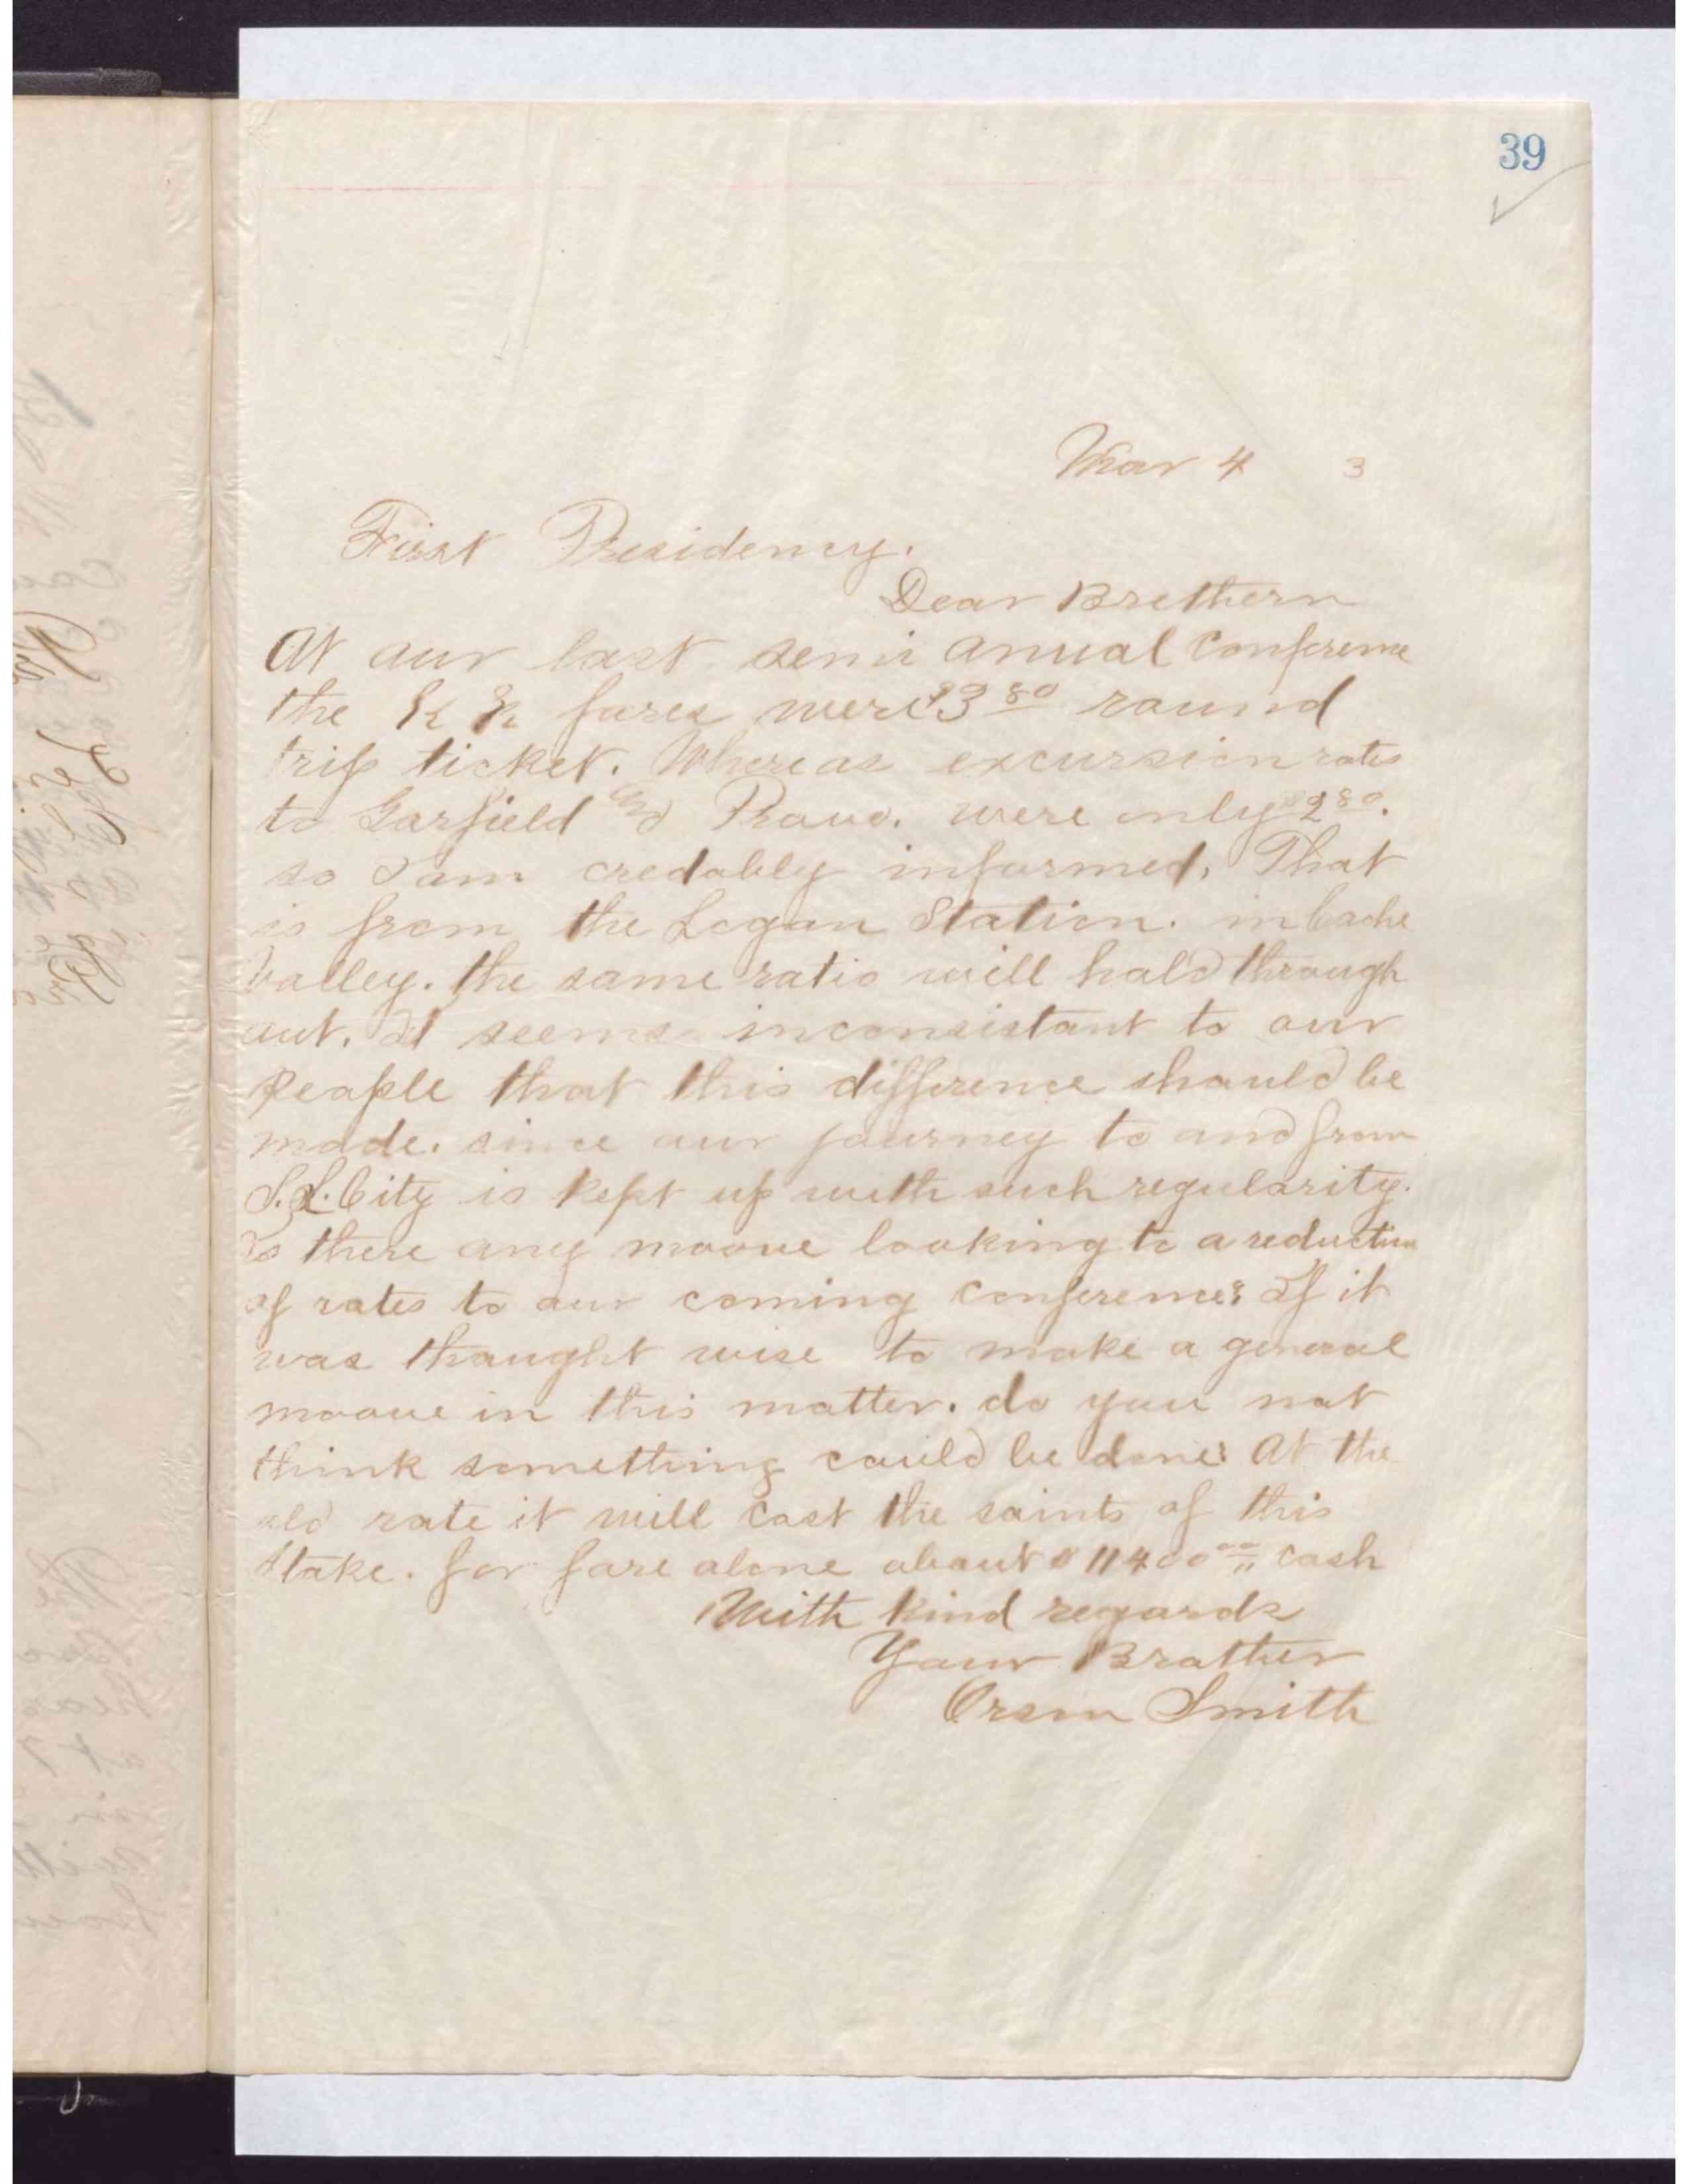 39
Mar 4 3
First Presidency.
Dear Brethern
At our last semi anual Conference
the R R fares were $3 80 round
trip ticket. Whereas excursion rates
to Garfield and Provo. were only $2 80.
so I am credably informed, That
is from the Logan Station. in Cache
Valley. the same ratio will hold through
out. It seems inconsistant to our
people that this difference should be
made. since our journey to and from
S.L. City is kept up with such regularity.
Is there any moove looking to a reduction
of rates to our coming conference? If it
was thought wise to make a general
moove in this matter. do you not
think something could be done? At the
old rate it will cost the saints of this
stake. for fare alone about $11400 00 cash
With kind regards
Your Brother
Orson Smith